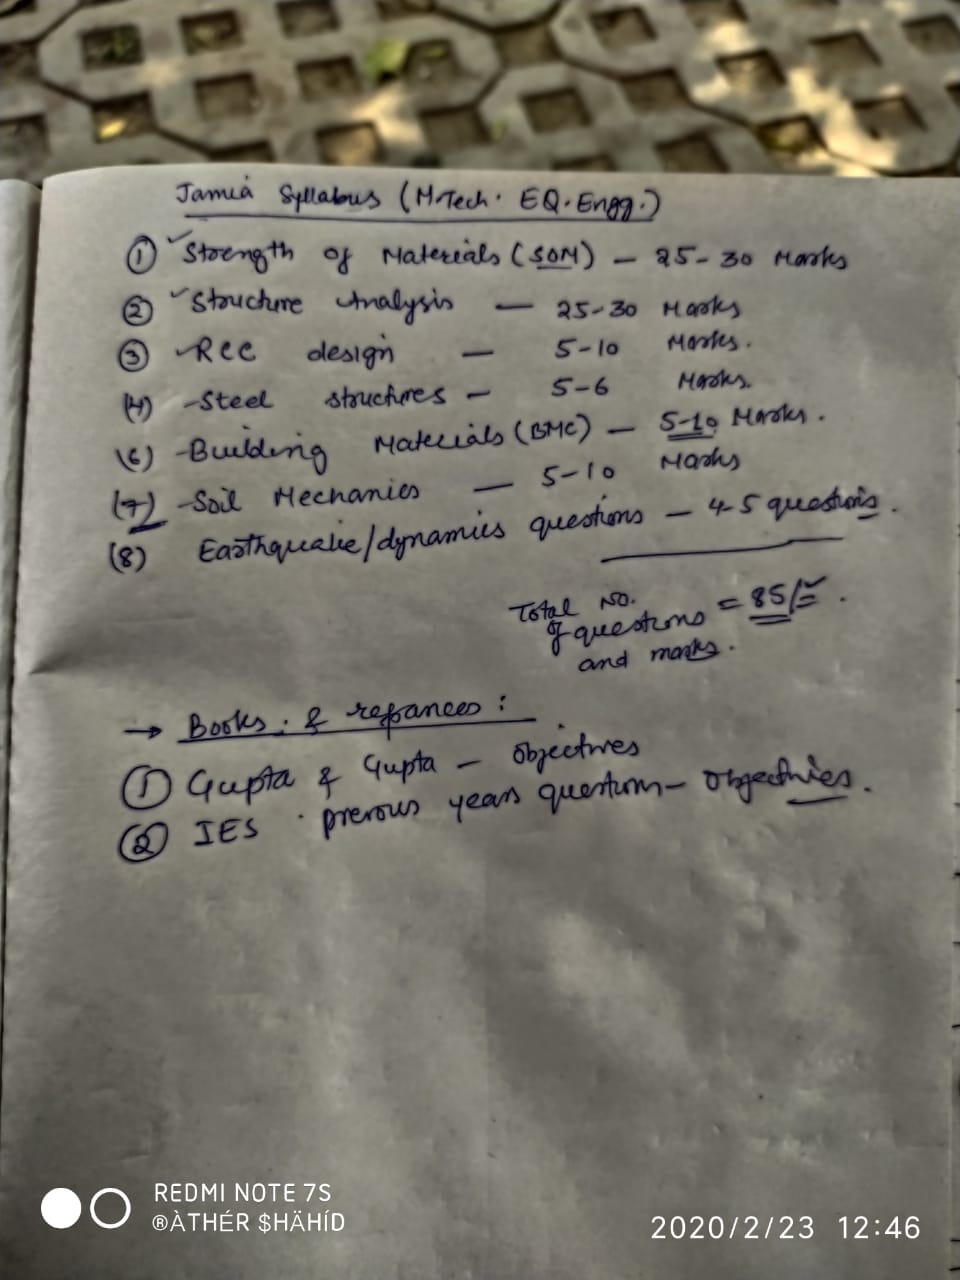 Jamia Syllabus (M.Tech. EQ. Engg.)
① Strength of Materials (SOM) – 25-30 Marks
② Structure Analysis – 25-30 Marks
③ RCC design – 5-10 Marks.
(4) - Steel structures – 5-6 Marks.
(6) - Building Materials (BMC) – 5-10 Marks.
(7) - Soil Mechanics – 5-10 Marks
(8) Earthquake/dynamics questions – 4-5 questions.
Total No. of questions and marks. = 85/=.
→ Books. & refrances :
① Gupta & Gupta – Objectives
② IES . prevous years questions – Objectives.
REDMI NOTE 7S
®ÀTHÉR $HÄHÍD
2020/2/23 12:46